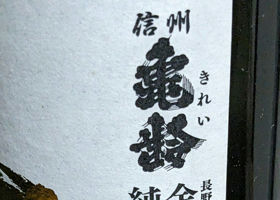 信州
亀齢
きれい
純金
長野